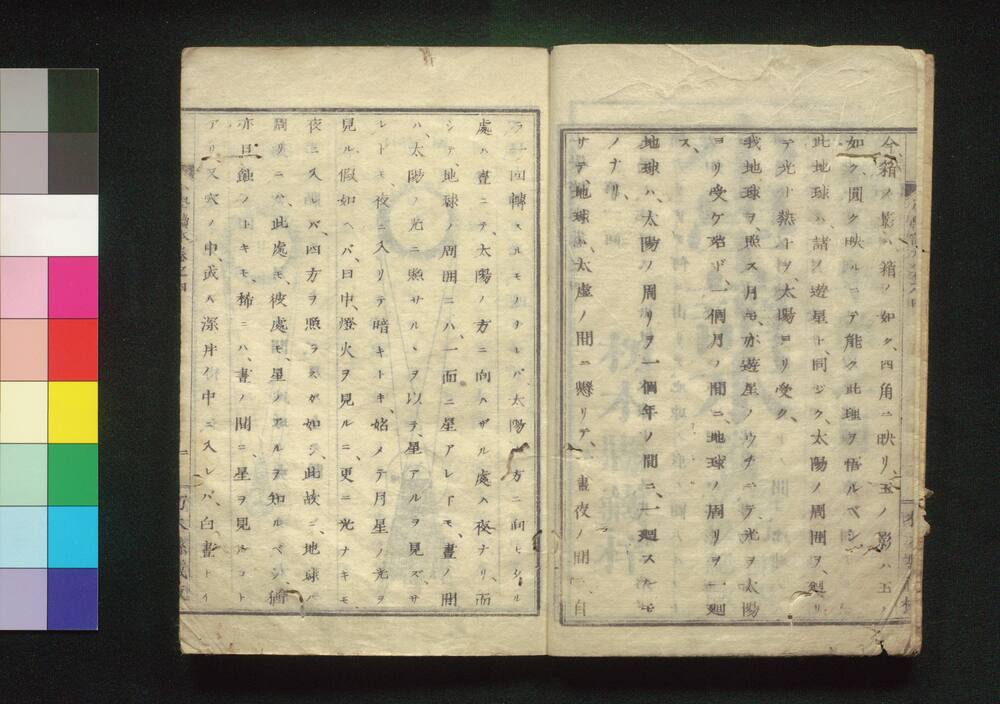 今箱ノ影ハ箱ノ如ク、四角ニ映リ、玉ノ影ハ玉ノ
如ク圓ク映ルニテ能ク此理ヲ悟ルベシ、
此地球ハ、諸ノ遊星ト同ジク、太陽ノ周囲ヲ、廻リ
テ光ト熱トヲ太陽ヨリ受ク、
我地球ヲ、照ス月モ亦遊星ノウチニテ光ヲ太陽
ヨリ受ケ殆ド、一個月ノ間ニ、地球ノ周リヲ一廻
ス、
地球ハ、太陽ノ周リヲ一個年ノ間ニ、一廻スルモ
ノナリ、
サテ、地球ハ、太虚ノ間ニ懸リテ、晝夜ノ間ニ自
ラ一回轉スルモノナレバ、太陽ノ方ニ向ヒタル
處ハ晝ニテ、太陽ノ方ニ向ハザル處ハ夜ナリ、而
シテ、地球ノ周囲ニハ、一面ニ星アレドモ、晝ノ間
ハ、太陽ノ光ニ照サルヽヲ以テ、星アルヲ見ズ、サ
レドモ、夜ニ入リテ暗キトキ、始メテ月星ノ光ヲ
見ル、假如ヘバ、日中、燈火ヲ見ルニ、更ニ光ナキモ、
夜ニ入レバ、四方ヲ照ラスガ如シ、此故ニ、地球ノ
周リニハ、此處モ、彼處モ、星ノアルヲ知ルベシ、猶
亦日蝕ノトキモ、稀ニハ、晝ノ間ニ、星ヲ見ルコト
アリ、又穴ノ中、或ハ深井ノ中ニ入レバ、白晝トイ